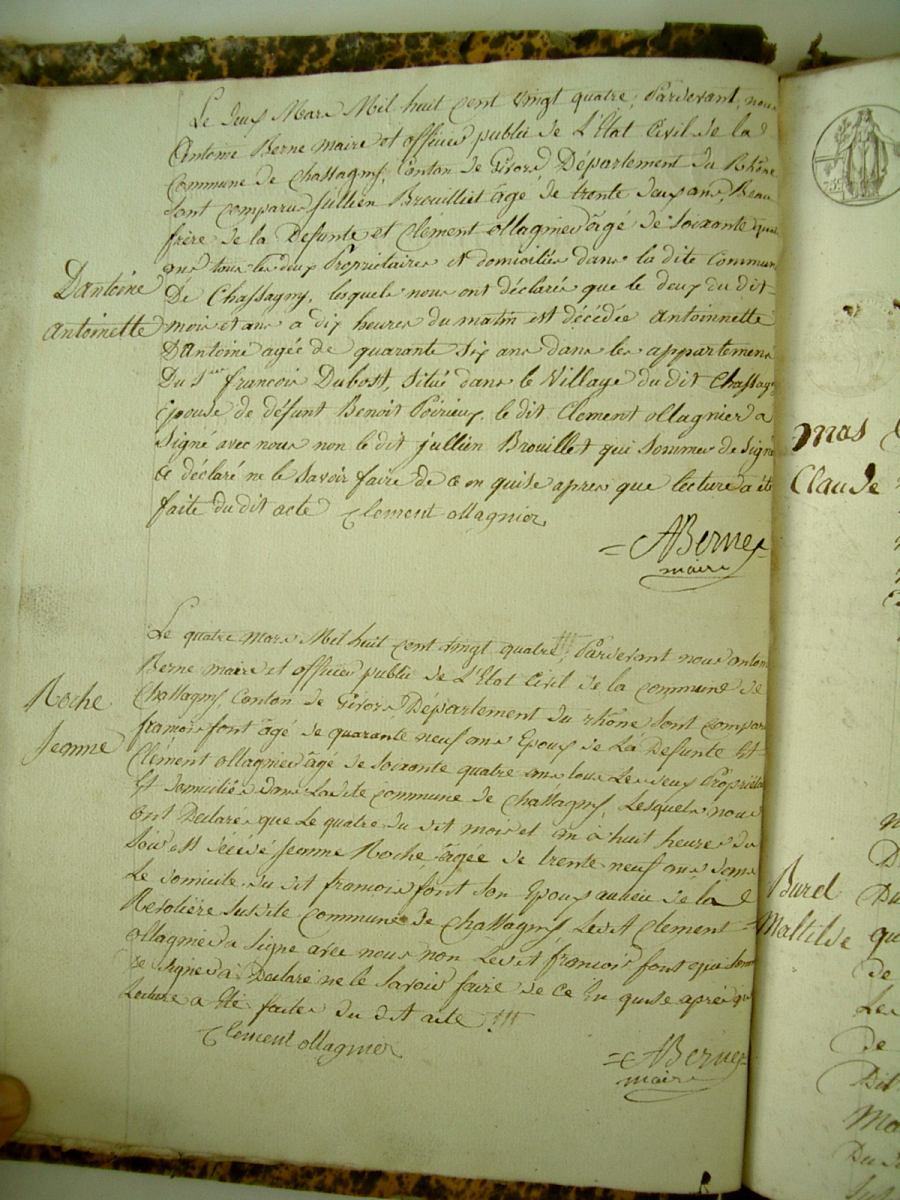 Le deux Mars Mil huit cent vingt quatre, Pardevant, nous
Antoine Berne maire et officier public de L'Etat Civil de la
Commune de Chassagny, Canton de Givors, Département du Rhône
sont comparus Jullien Brouilliet âgé de trente deux ans, Beau
frère de la Defunte et Clément ollagnier âgé de Soixante quatre
ans tous les deux Propriétaires et domiciliés dans la dite Commun
Dantoine
De Chassagny, lesquels nous ont déclaré que le deux du dit
antoinette
mois et ans a dix heures du matin est décédée Antoinnette
Dantoine agée de quarante six ans dans les appartemens
Du Sieur francois Dubost, situé dans le Village du dit Chassagny
épouse de défunt Benoit Poirieux. le dit Clement ollagnier a
Signé avec nous non le dit jullien Brouillet qui sommer de signé
a déclaré ne le savoir faire de ce en quise apres que lecture a été
faite du dit acte Clement ollagnier
= ABerne =
maire
Le quatre mars Mil huit cent vingt quatre, Pardevant nous antoin
Berne maire et officier public de L'Etat Civil de la commune de
Chassagny, Canton de Givors Département du rhône sont compar
Roche
francois font âgé de quarante neuf ans Epoux de La Defunte Et
Jeanne
Clément ollagnier âgé de soixante quatre ans tous Les deux Propriétai
Et domiciliés dans Ladite commune de Chassagny, Lesquels nous
ont Declarés que Le quatre du dit mois et an à huit heures du
Soir Est décédé Jeanne Roche âgée de trente neuf ans dans
Le domicile du dit francois font son Epoux au lieu de la
susdite Commune de Chassagny Le dit Clement
ollagnier a Signe avec nous non Le dit francois font qui somme
de Signer a Declaré ne le Savoir faire de ce En quise après que
Lecture a Eté faites du dit acte
Clement ollagnier
= ABerne =
maire
mas
Claude
Burel
Maltilde
qu
de
Les
De
Dit
Ma